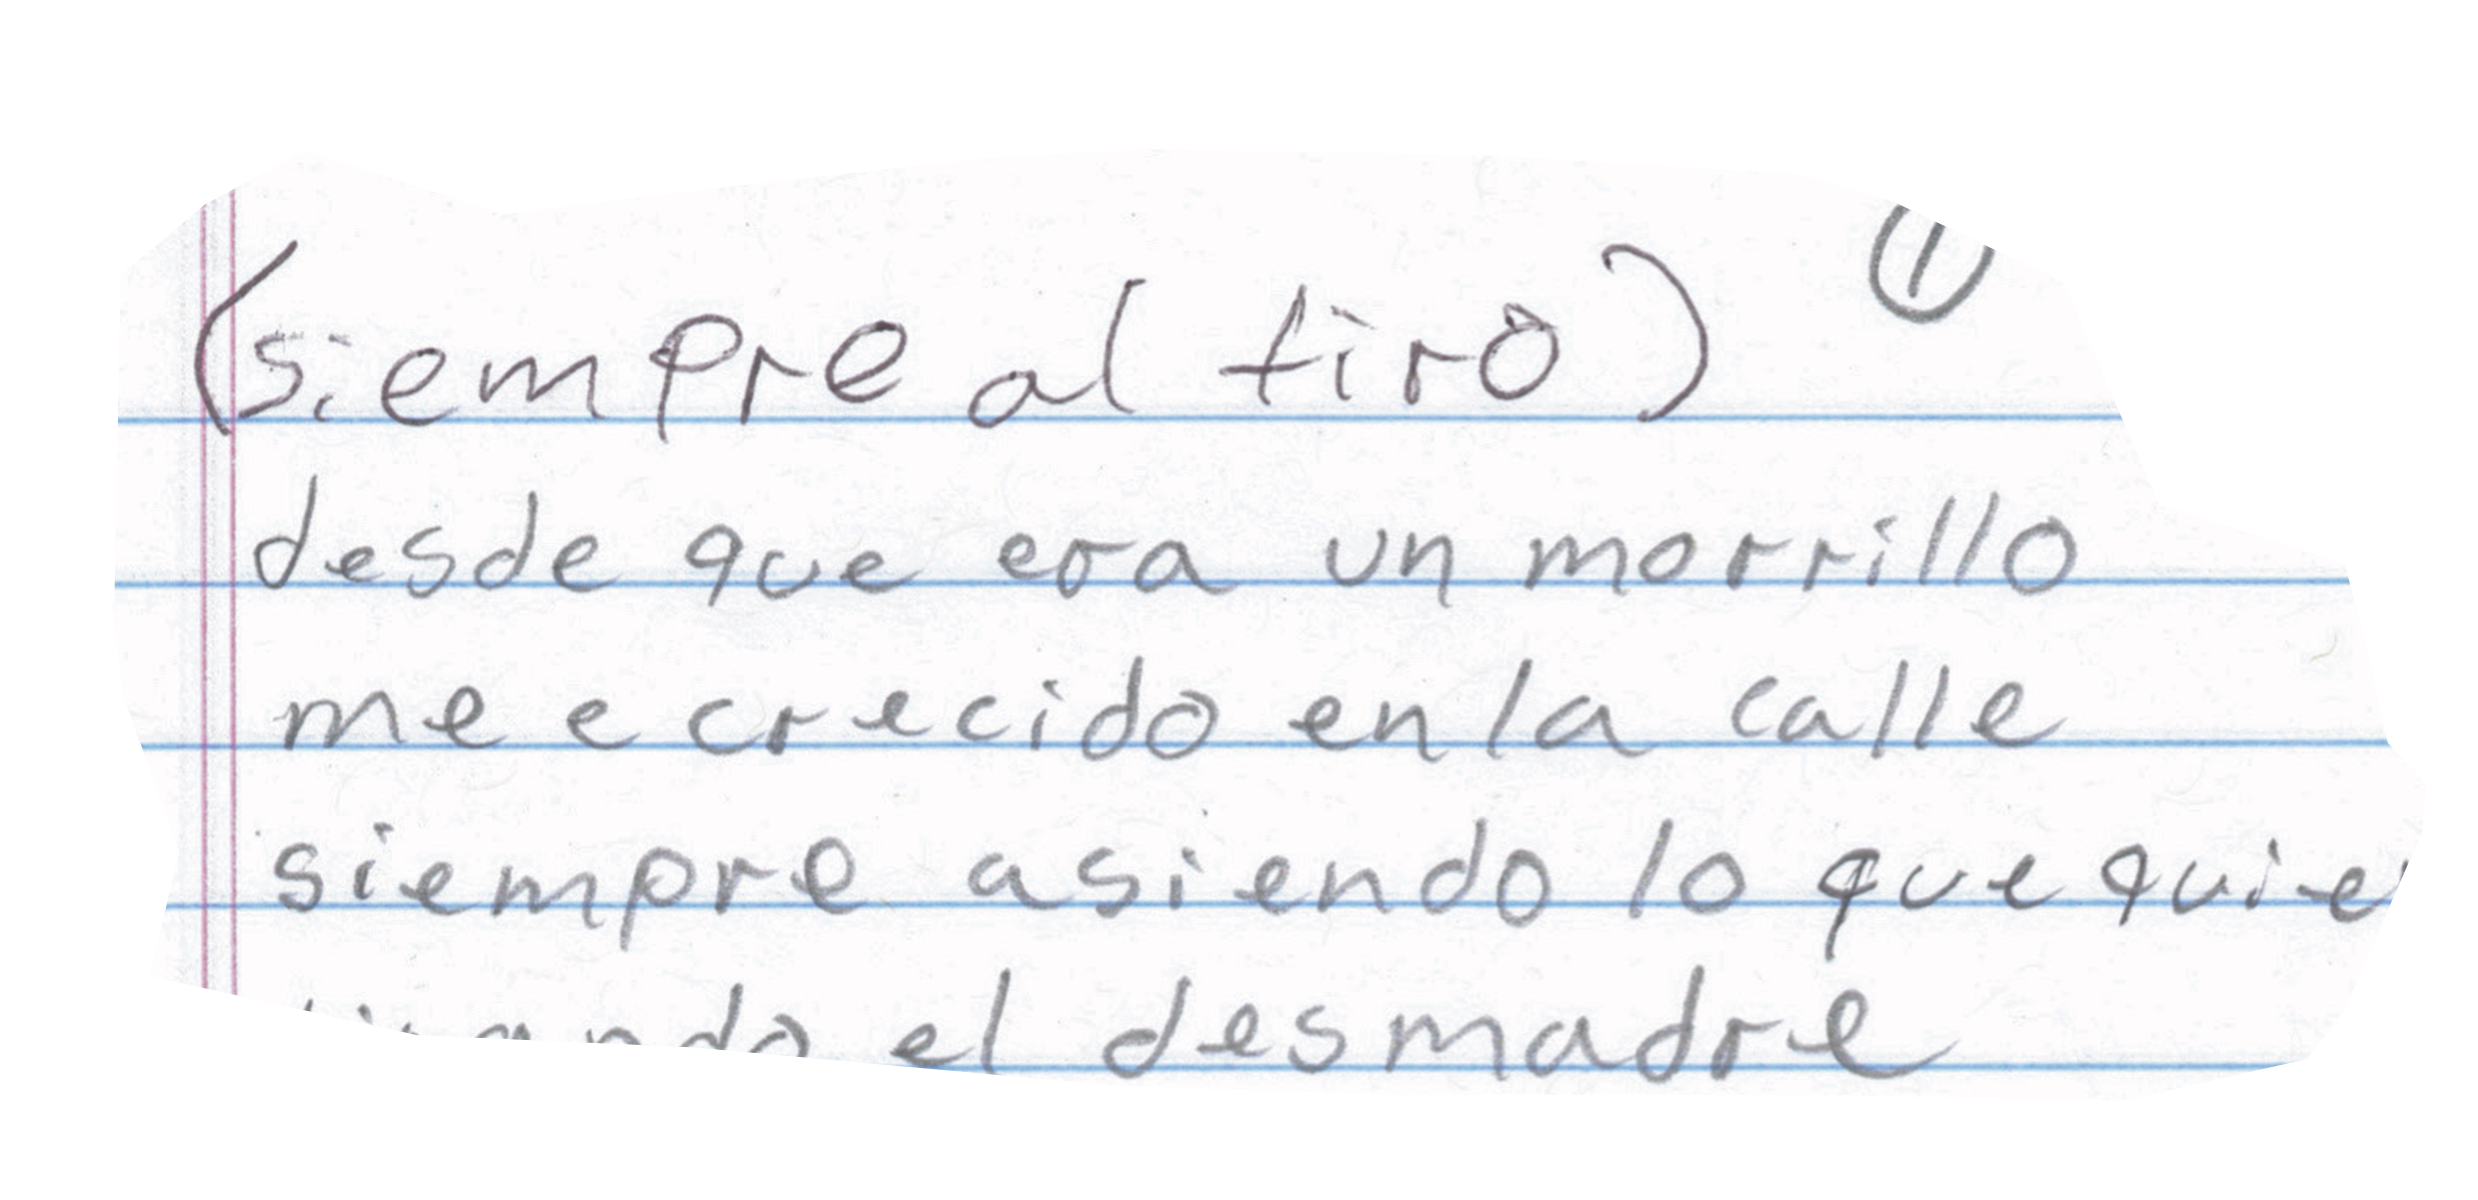 (siempre al tiro) ①
desde que era un morrillo
me e crecido en la calle
siempre asiendo lo que
el desmadre